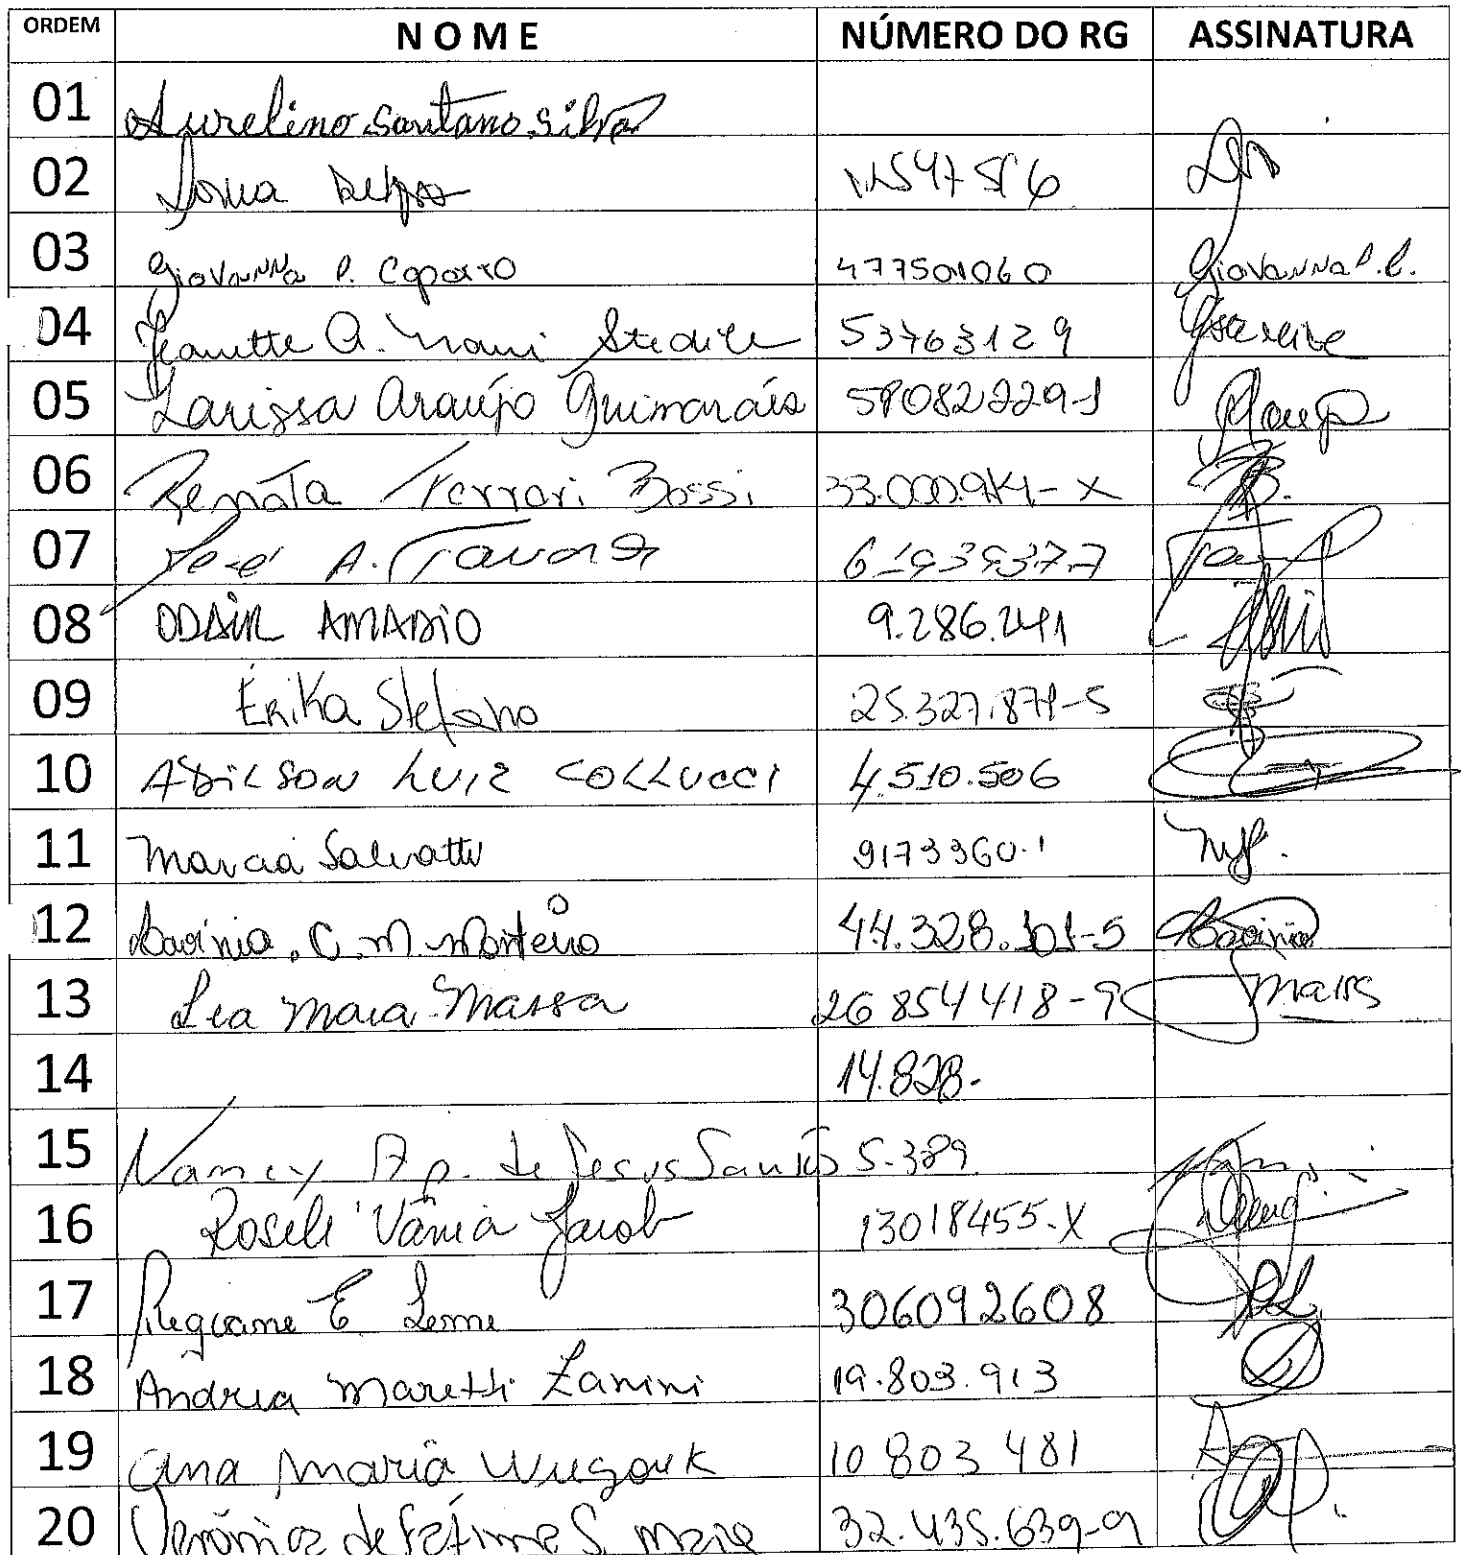 ORDEM NOME NÚMERO DO RG ASSINATURA
01 Aurelino Santano Silva
02 Sonia
03 Giovanna P. Caparro 477501060 Giovanna P. C.
04 Jeanette A. Nani Stedile 53763129
05 Larissa Araújo Guimarães 58082229-1
06 Renata Ferrari Bossi 33.000.914-X
07 José A. Tavora
08 ODAIR AMADIO 9.286.241
09 Érika Stefano 25.327.871-5
10 ADILSON LUIZ COLLUCCI 4.510.506
11 Marcia Salvatti 9173960.1
12 Lavínia. C. M. Monteiro 44.328.101-5 Lavinia
13 Lea Mara Massa 26 854 418-9
14 14.828.
15 Nancy Ap. de Jesus Santos 5.389
16 Roseli Vânia Jacob 13018455-X
17 Regiane E. Leme 306092608
18 Andrea Maretti Zanini 19.803.913
19 Ana Maria 10 803 481
20 Verônica de Fátima S. 32.435.639-9